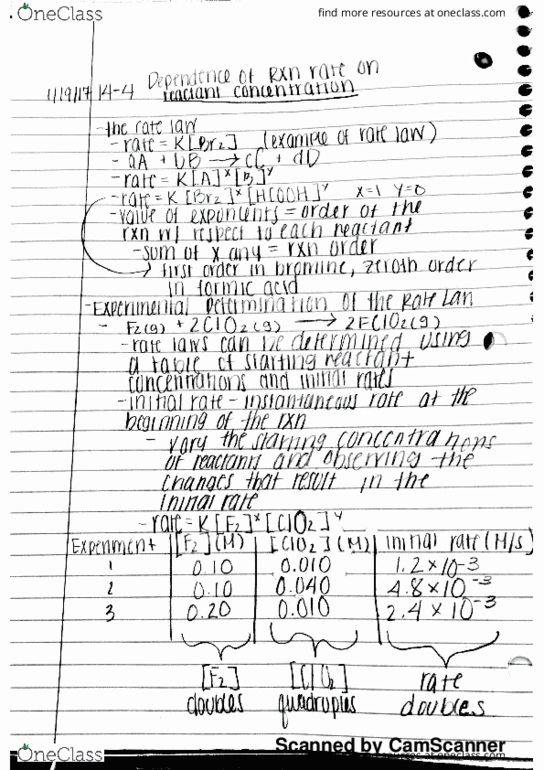 OneClass
find more resources at oneclass.com
1/19/17 14-4 Dependence of rxn rate on
reactant concentration
-the rate law
-rate = K[Br₂] (example of rate law)
- aA + bB → cC + dD
-rate = K[A]ˣ[B]ʸ
-rate = K [Br₂]ˣ [HCOOH]ʸ x=1 y=0
-value of exponents = order of the
rxn w/ respect to each reactant
-sum of x any = rxn order
first order in bromine, zeroth order
in formic acid
-Experimental Determination of the Rate Law
- F₂(g) + 2ClO₂(g) → 2FClO₂(g)
-rate laws can be determined using
a table of starting reactant
concentrations and initial rates
-initial rate - instantaneous rate at the
beginning of the rxn
- vary the starting concentrations
of reactants and observing the
changes that result in the
initial rate
-rate = K [F₂]ˣ [ClO₂]ʸ
Experiment [F₂](M) [ClO₂](M) initial rate (M/s)
1 0.10 0.010 1.2 × 10⁻³
2 0.10 0.040 4.8 × 10⁻³
3 0.20 0.010 2.4 × 10⁻³
[F₂] [ClO₂] rate
doubles quadruples doubles
Scanned by CamScanner
OneClass
find more resources at oneclass.com